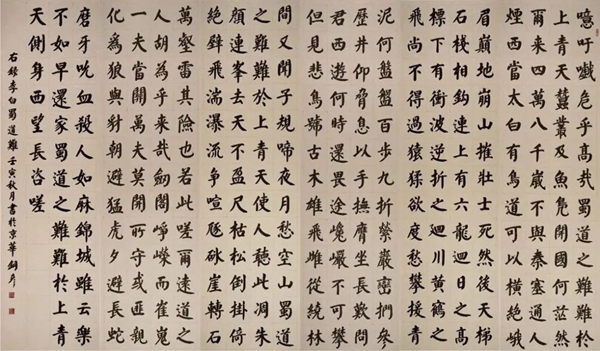 噫吁戲危乎高哉蜀道之難難於
上青天蠶叢及魚鳧開國何茫然
爾來四萬八千歲不與秦塞通人
煙西當太白有鳥道可以橫絕峨
眉巔地崩山摧壯士死然後天梯
石棧相鉤連上有六龍迴日之高
標下有衝波逆折之迴川黃鶴之
飛尚不得過猿猱欲度愁攀援青
泥何盤盤百步九折縈巖巒捫參
歷井仰脅息以手撫膺坐長歎問
君西遊何時還畏途巉巖不可攀
但見悲鳥號古木雄飛雌從繞林
間又聞子規啼夜月愁空山蜀道
之難難於上青天使人聽此凋朱
顏連峯去天不盈尺枯松倒掛倚
絕壁飛湍瀑流爭喧豗砯崖轉石
萬壑雷其險也若此嗟爾遠道之
人胡為乎來哉劍閣崢嶸而崔嵬
一夫當關萬夫莫開所守或匪親
化為狼與豺朝避猛虎夕避長蛇
磨牙吮血殺人如麻錦城雖云樂
不如早還家蜀道之難難於上青
天側身西望長咨嗟
右錄李白蜀道難壬寅秋月書於京華